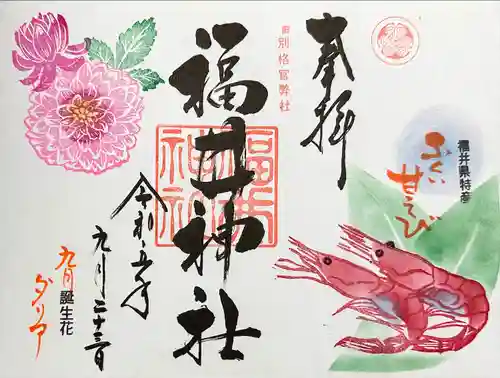 奉拝
福井県特産
ふくい
甘えび
前別格官幣社
福井神社
福井神社
令和五年
九月二十三日
九月誕生花
ダリア